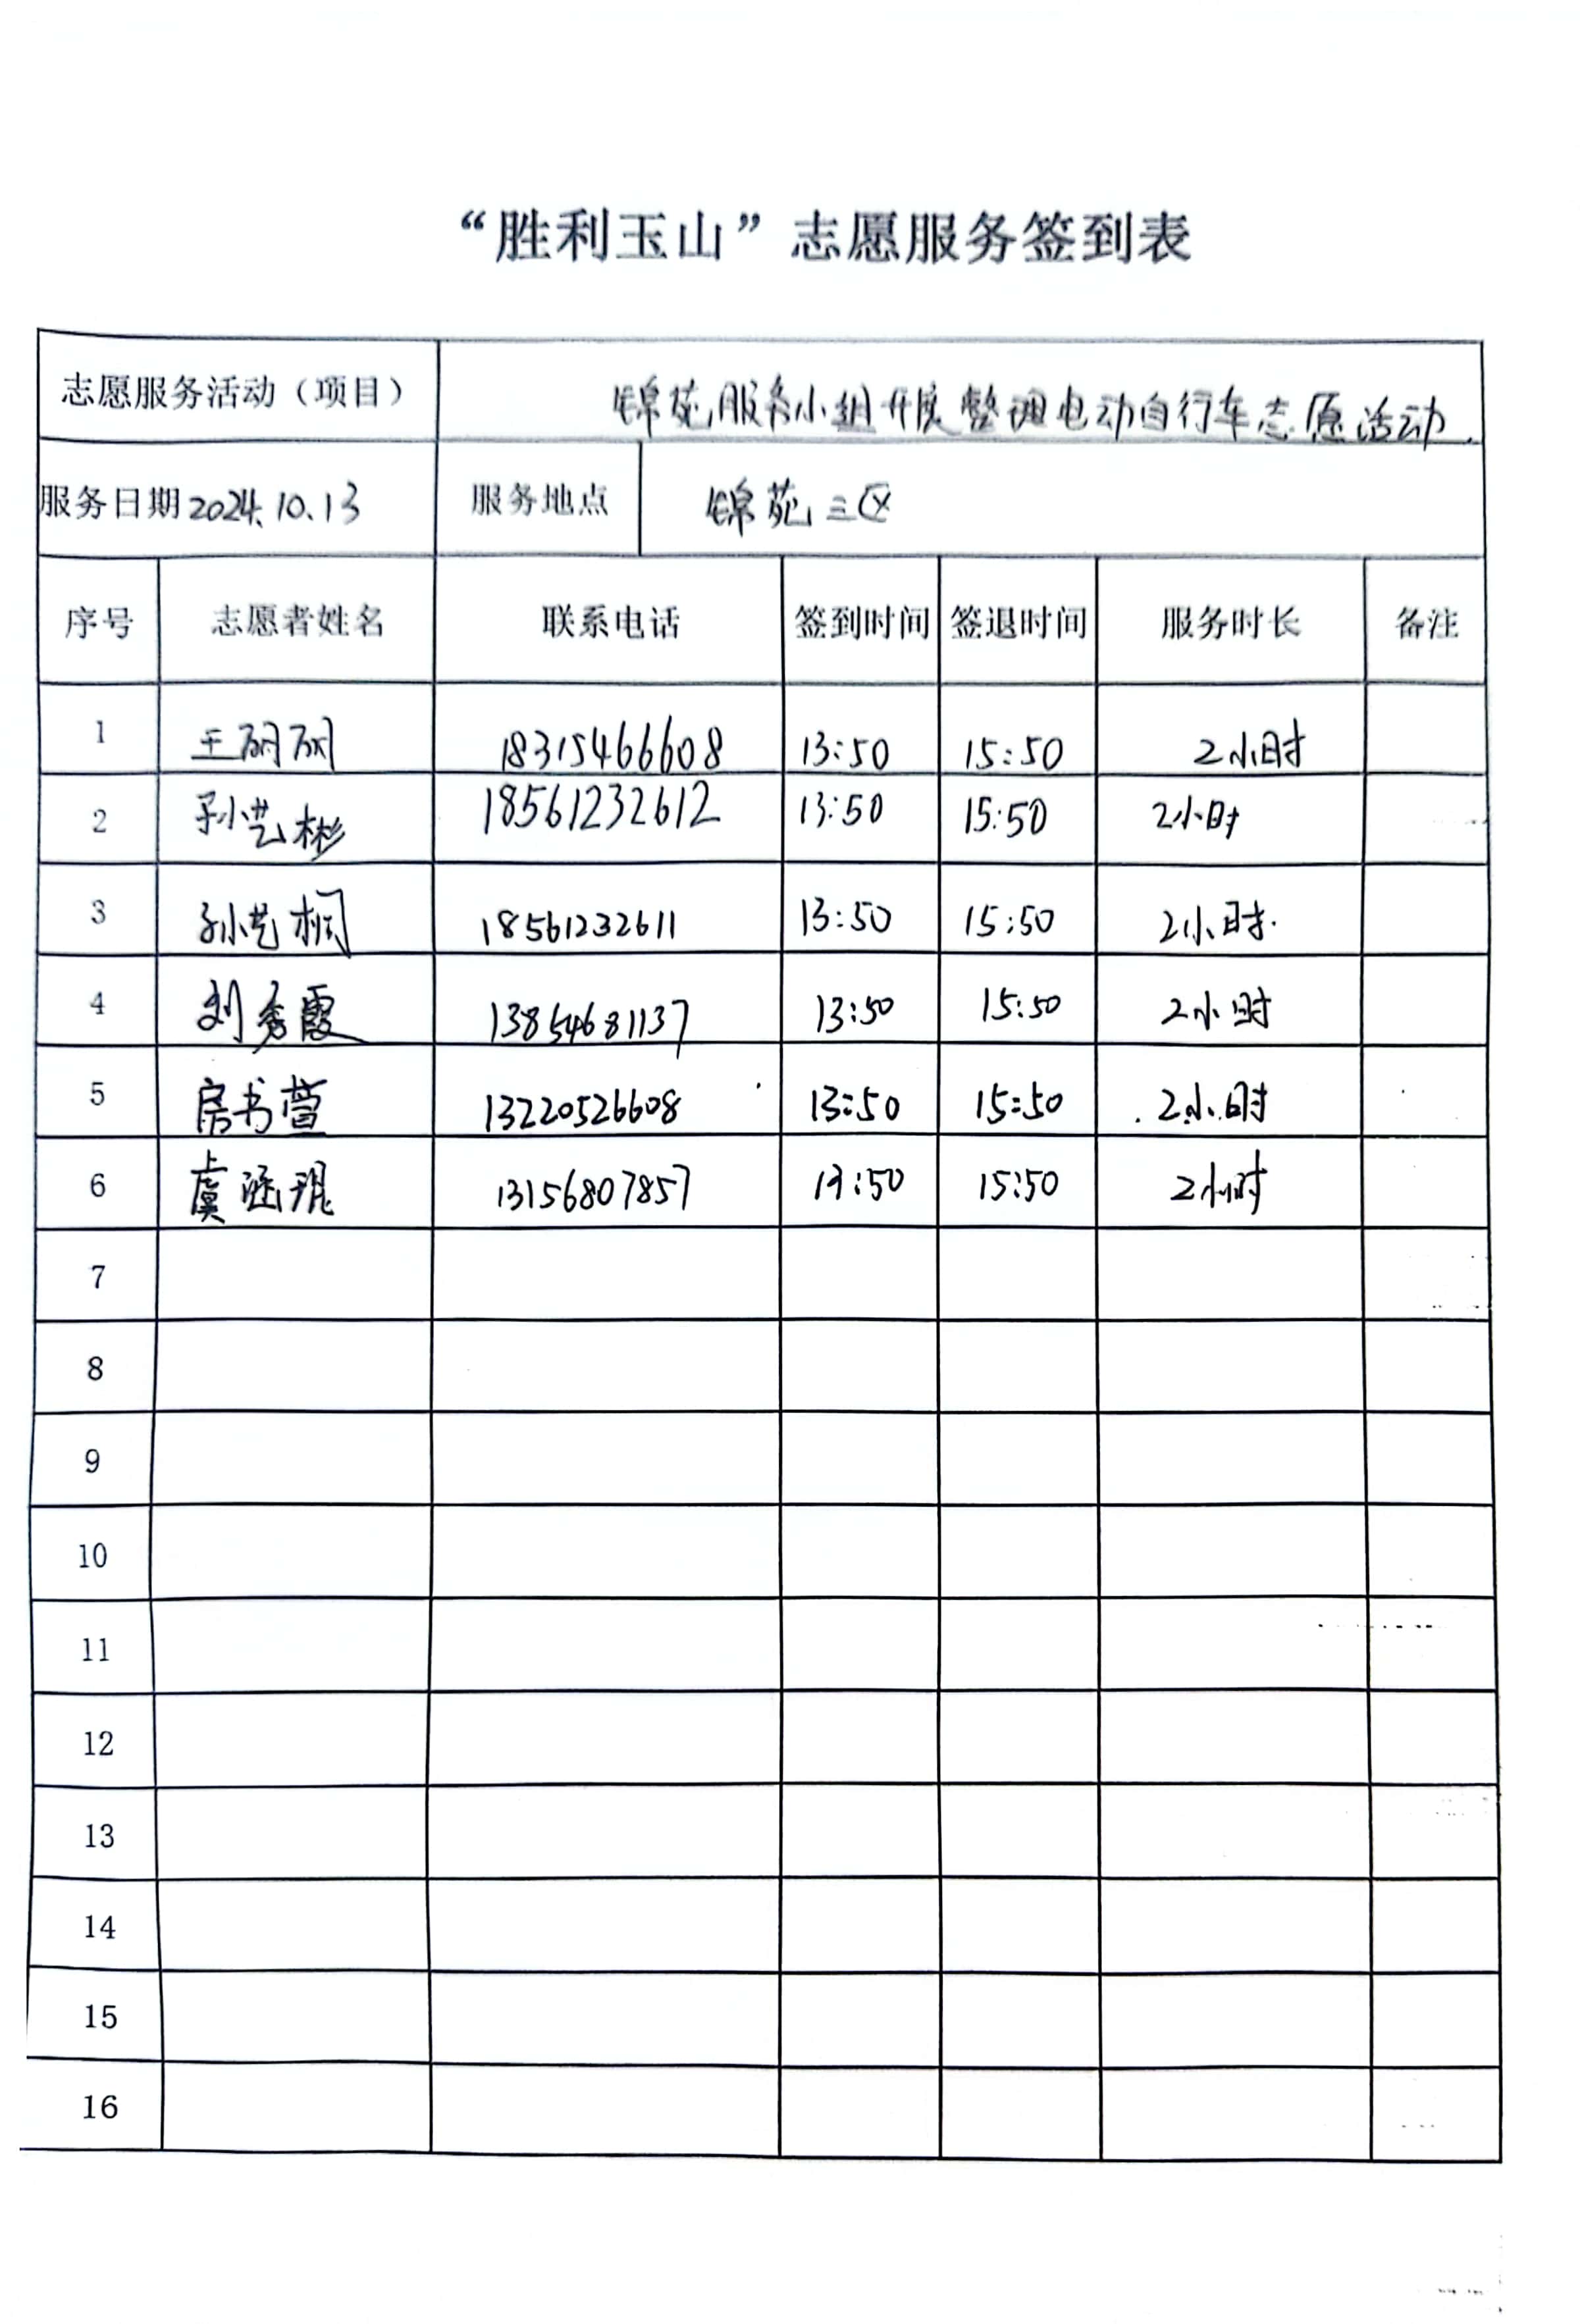 “胜利玉山”志愿服务签到表
志愿服务活动（项目） 锦苑服务小组开展整理电动自行车志愿活动.
服务日期 2024.10.13 服务地点 锦苑三区
序号 志愿者姓名 联系电话 签到时间 签退时间 服务时长 备注
1 王丽丽 18315466608 13:50 15:50 2小时
2 孙艺彬 18561232612 13:50 15:50 2小时
3 孙艺桐 18561232611 13:50 15:50 2小时.
4 刘秀霞 13854681137 13:50 15:50 2小时
5 房书萱 13220526608 13:50 15:50 2小时
6 虞涵琨 13156807857 13:50 15:50 2小时
7
8
9
10
11
12
13
14
15
16